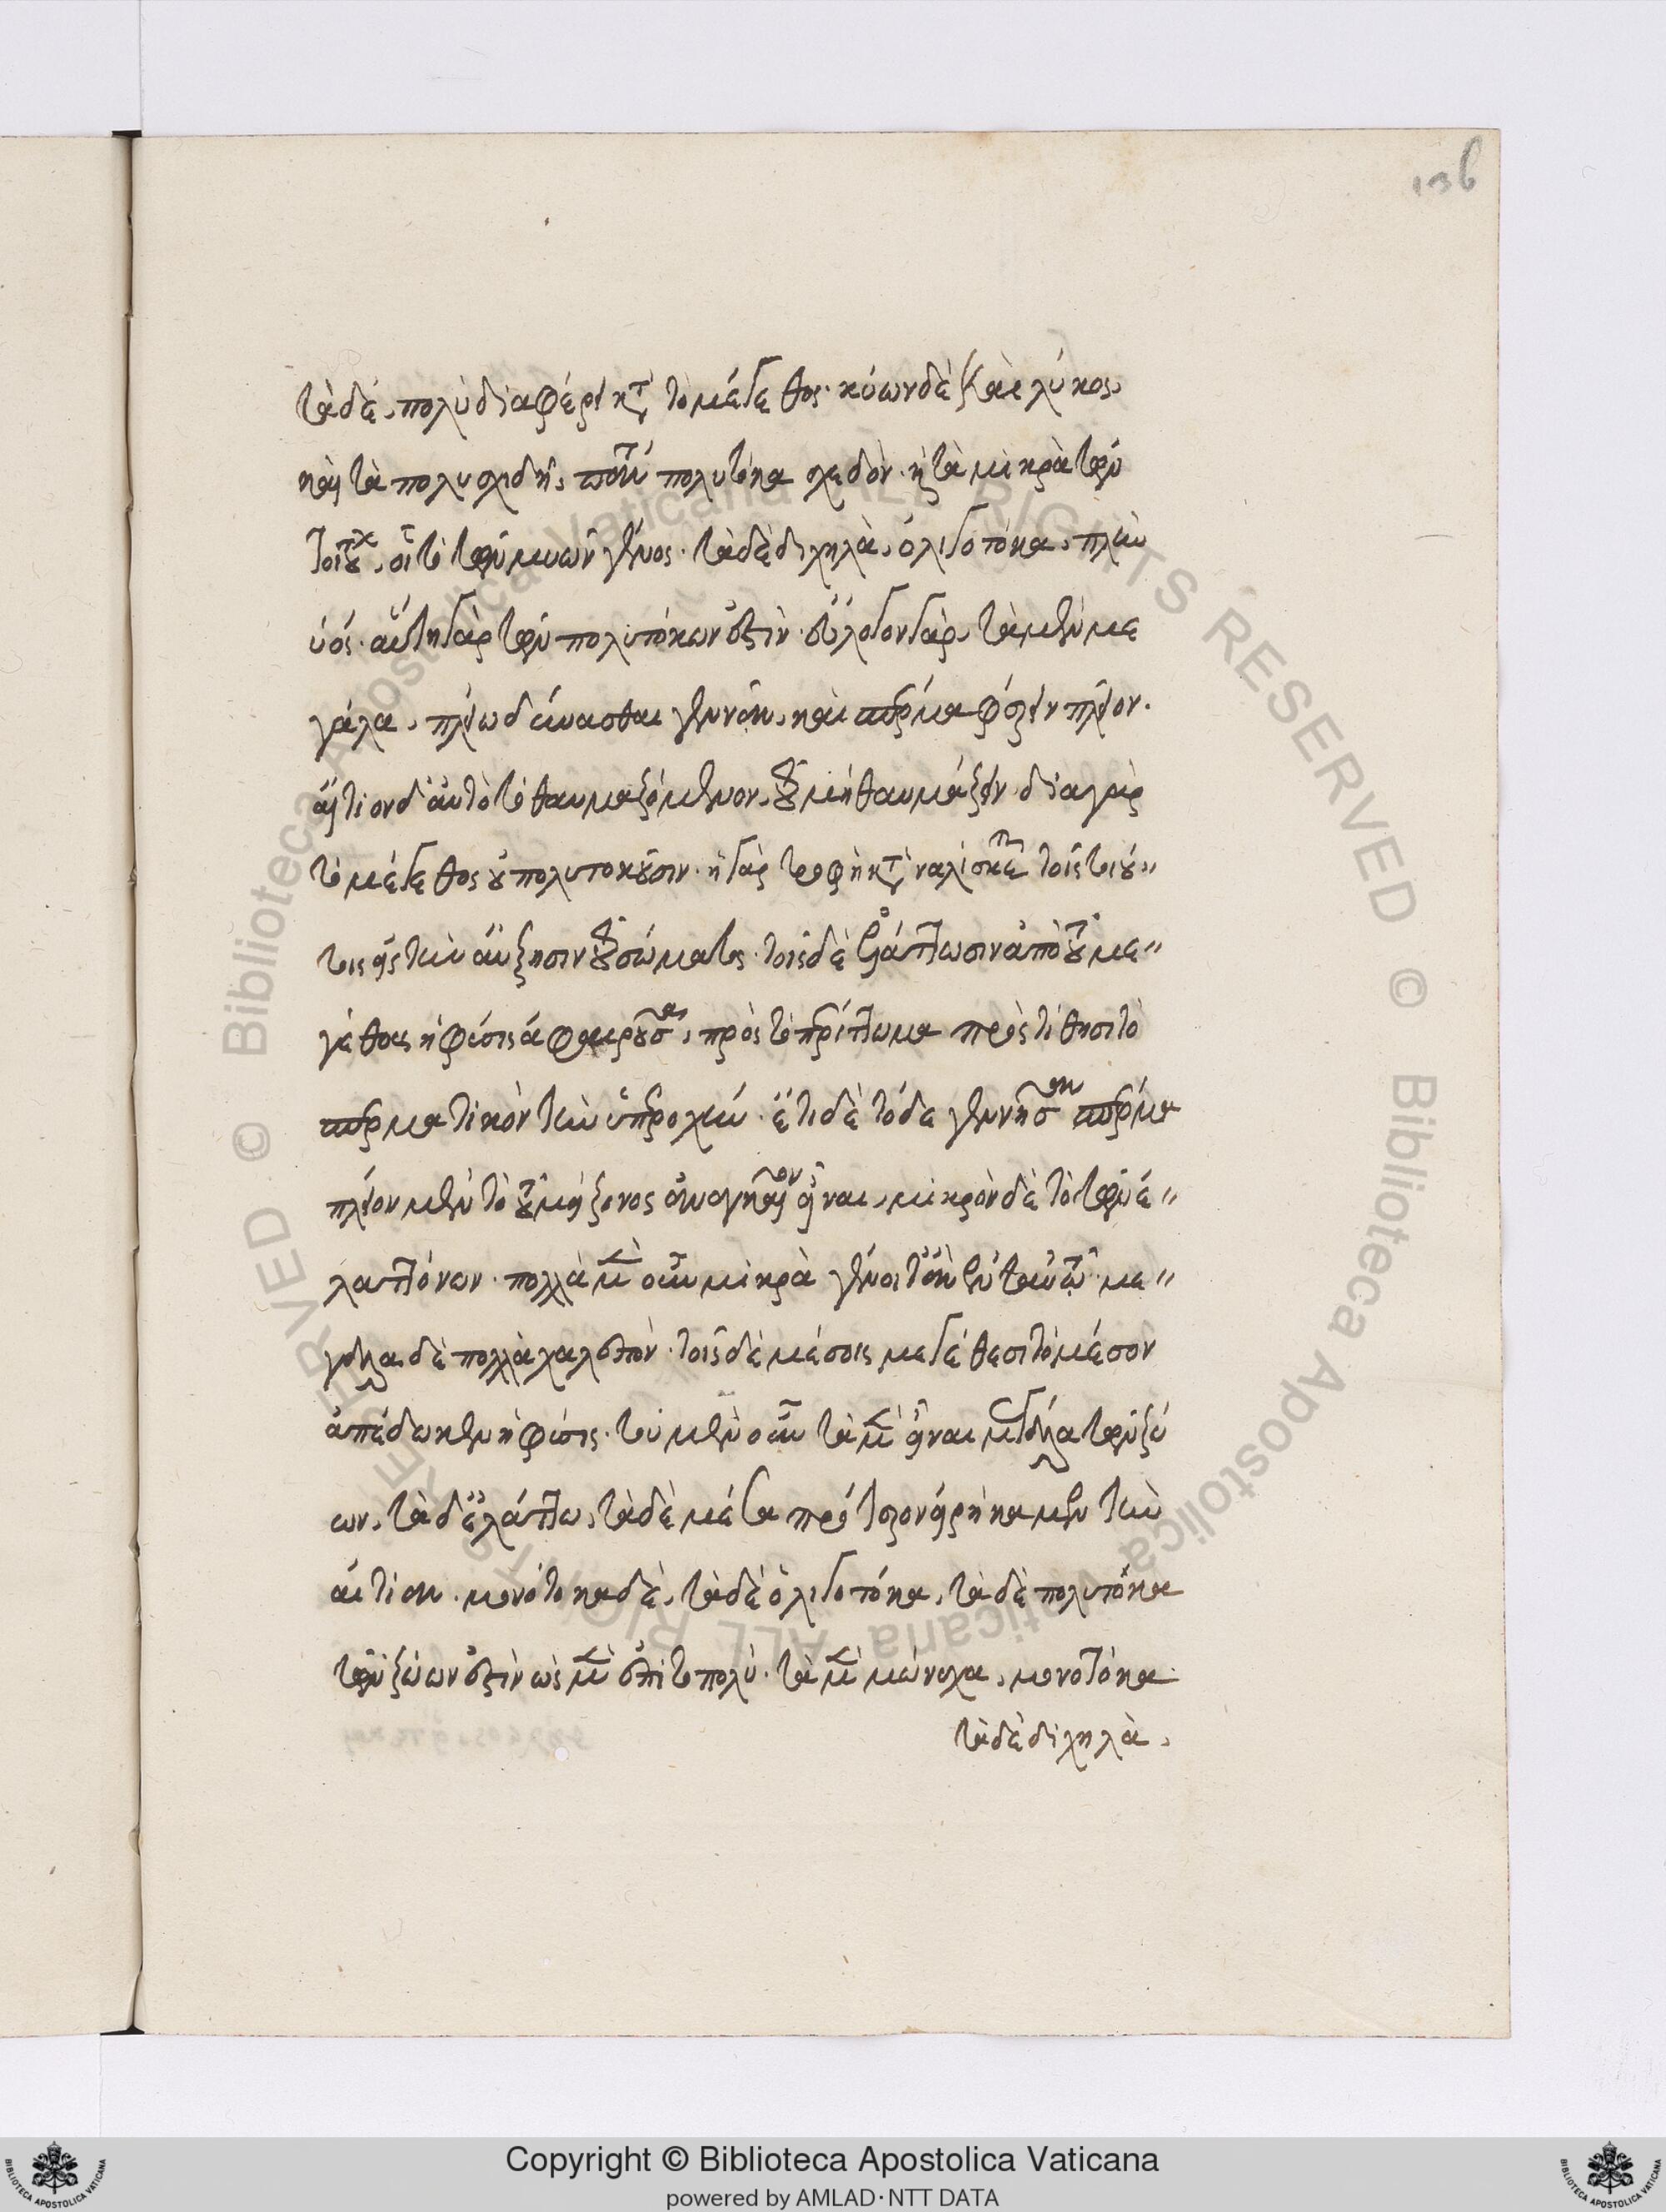 136
τὰ δὲ, πολὺ διαφέρει κατὰ τὸ μέγεθος. κύων δὲ καὶ λύκος,
καὶ τὰ πολυσχιδῆ, πάντα πολυτόκα σχεδὸν. καὶ τὰ μικρὰ τῶν
τοιούτων, οἷον τὸ τῶν μυῶν γένος. τὰ δὲ διχηλὰ, ὀλιγοτόκα, πλὴν
ὑός. αὕτη γὰρ τῶν πολυτόκων ἐστὶν. εὔλογον γὰρ, τὰ μὲν με
γάλα, πλείω δύνασθαι γεννᾶν, καὶ σπέρμα φέρειν πλεῖον.
αἴτιον δ' αὐτὸ τὸ θαυμαζόμενον, τοῦ μὴ θαυμάζειν. διὰ γὰρ
τὸ μέγεθος οὐ πολυτοκοῦσιν. ἡ γὰρ τροφὴ καταναλίσκεται τοῖς τοιού"
τοις εἰς τὴν αὔξησιν τοῦ σώματος. τοῖς δὲ ἐλάττωσιν ἀπὸ τοῦ με"
γέθους ἡ φύσις ἀφαιροῦσα, πρὸς τὸ περίττωμα προστίθησι τὸ
σπερματικὸν τὴν ὑπεροχήν. ἔτι δὲ τόδε γεννῆσαν σπέρμα
πλεῖον μὲν τὸ τοῦ μείζονος ἀναγκαῖον εἶναι, μικρὸν δὲ τὸ τῶν ἐ"
λαττόνων. πολλὰ μὲν οὖν μικρὰ γένοιτ' ἂν ἐν ταὐτῷ. με"
γάλα δὲ πολλὰ χαλεπὸν. τοῖς δὲ μέσοις μεγέθεσι τὸ μέσον
ἀπέδωκεν ἡ φύσις. τοῦ μὲν οὖν τὰ μὲν εἶναι μεγάλα τῶν ζώ
ων, τὰ δ' ἐλάττω, τὰ δὲ μέσα πρότερον εἰρήκαμεν τὴν
αἰτίαν. μονοτόκα δὲ, τὰ δὲ ὀλιγοτόκα, τὰ δὲ πολυτόκα
τῶν ζώων ἐστὶν ὡς μὲν ἐπὶ τὸ πολὺ. τὰ μὲν μώνυχα, μονοτόκα.
τὰ δὲ διχηλὰ,
Copyright © Biblioteca Apostolica Vaticana
powered by AMLAD·NTT DATA